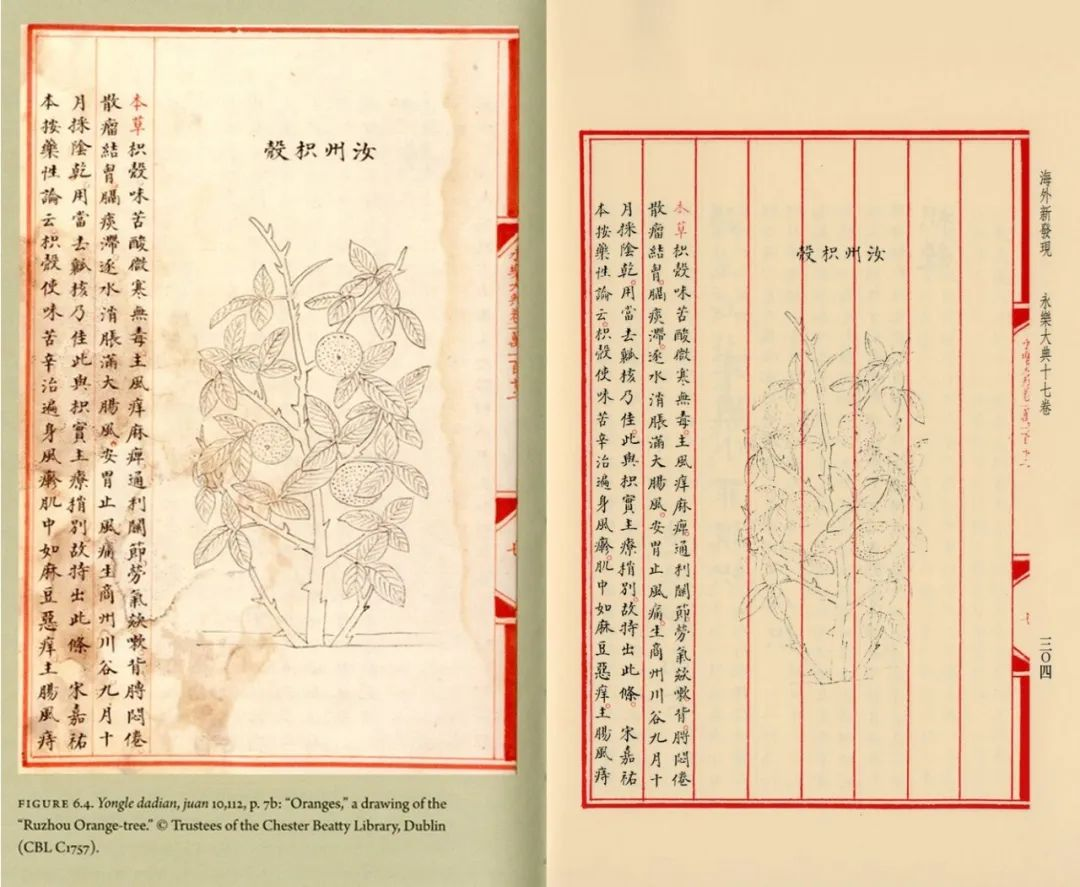 汝州枳殼
本草枳殼味苦酸微寒無毒主風痒麻痺通利關節勞氣欬嗽背膊悶倦
散瘤結胷膈痰滯逐水消脹滿大腸風安胃止風痛生商州川谷九月十
月採陰乾用當去瓤核乃佳此與枳實主療稍別故特出此條 宋嘉祐
本按藥性論云枳殼使味苦辛治遍身風疹肌中如麻豆惡痒主腸風痔
永樂大典卷一萬一百十二
七
FIGURE 6.4. Yongle dadian, juan 10,112, p. 7b: “Oranges,” a drawing of the
“Ruzhou Orange-tree.” © Trustees of the Chester Beatty Library, Dublin
(CBL C1757).
海外新發現 永樂大典十七卷
三〇四
汝州枳殼
本草枳殼味苦酸微寒無毒主風痒麻痺通利關節勞氣欬嗽背膊悶倦
散瘤結胷膈痰滯逐水消脹滿大腸風安胃止風痛生商州川谷九月十
月採陰乾用當去瓤核乃佳此與枳實主療稍別故特出此條 宋嘉祐
本按藥性論云枳殼使味苦辛治遍身風疹肌中如麻豆惡痒主腸風痔